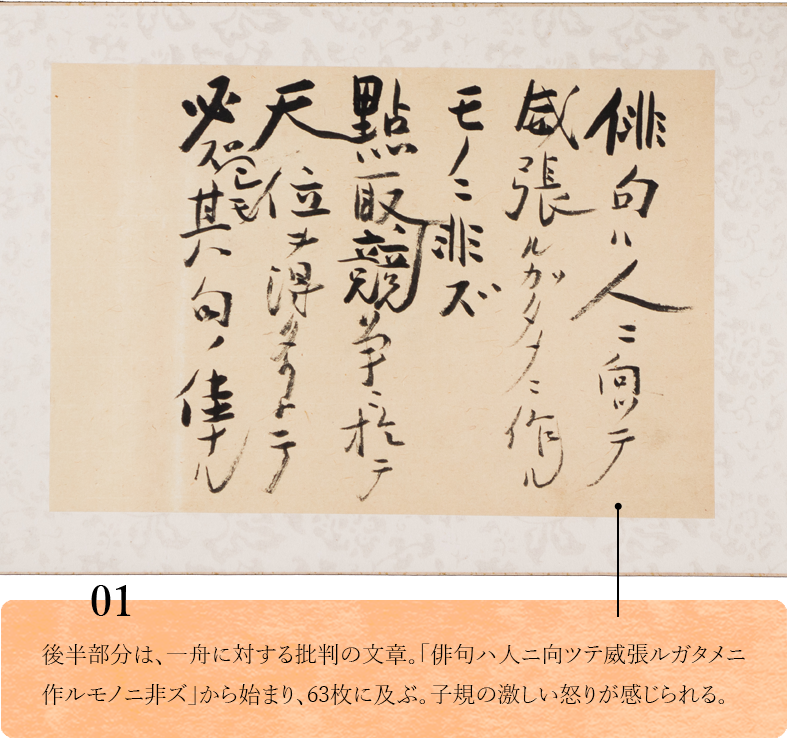 俳句ハ人ニ向ツテ
威張ルガタメニ作ル
モノニ非ズ
點取競争ニ於テ
天位ヲ得タリトテ
必ズシモ其句ノ佳ナル
01
後半部分は、一舟に対する批判の文章。「俳句ハ人ニ向ツテ威張ルガタメニ
作ルモノニ非ズ」から始まり、63枚に及ぶ。子規の激しい怒りが感じられる。